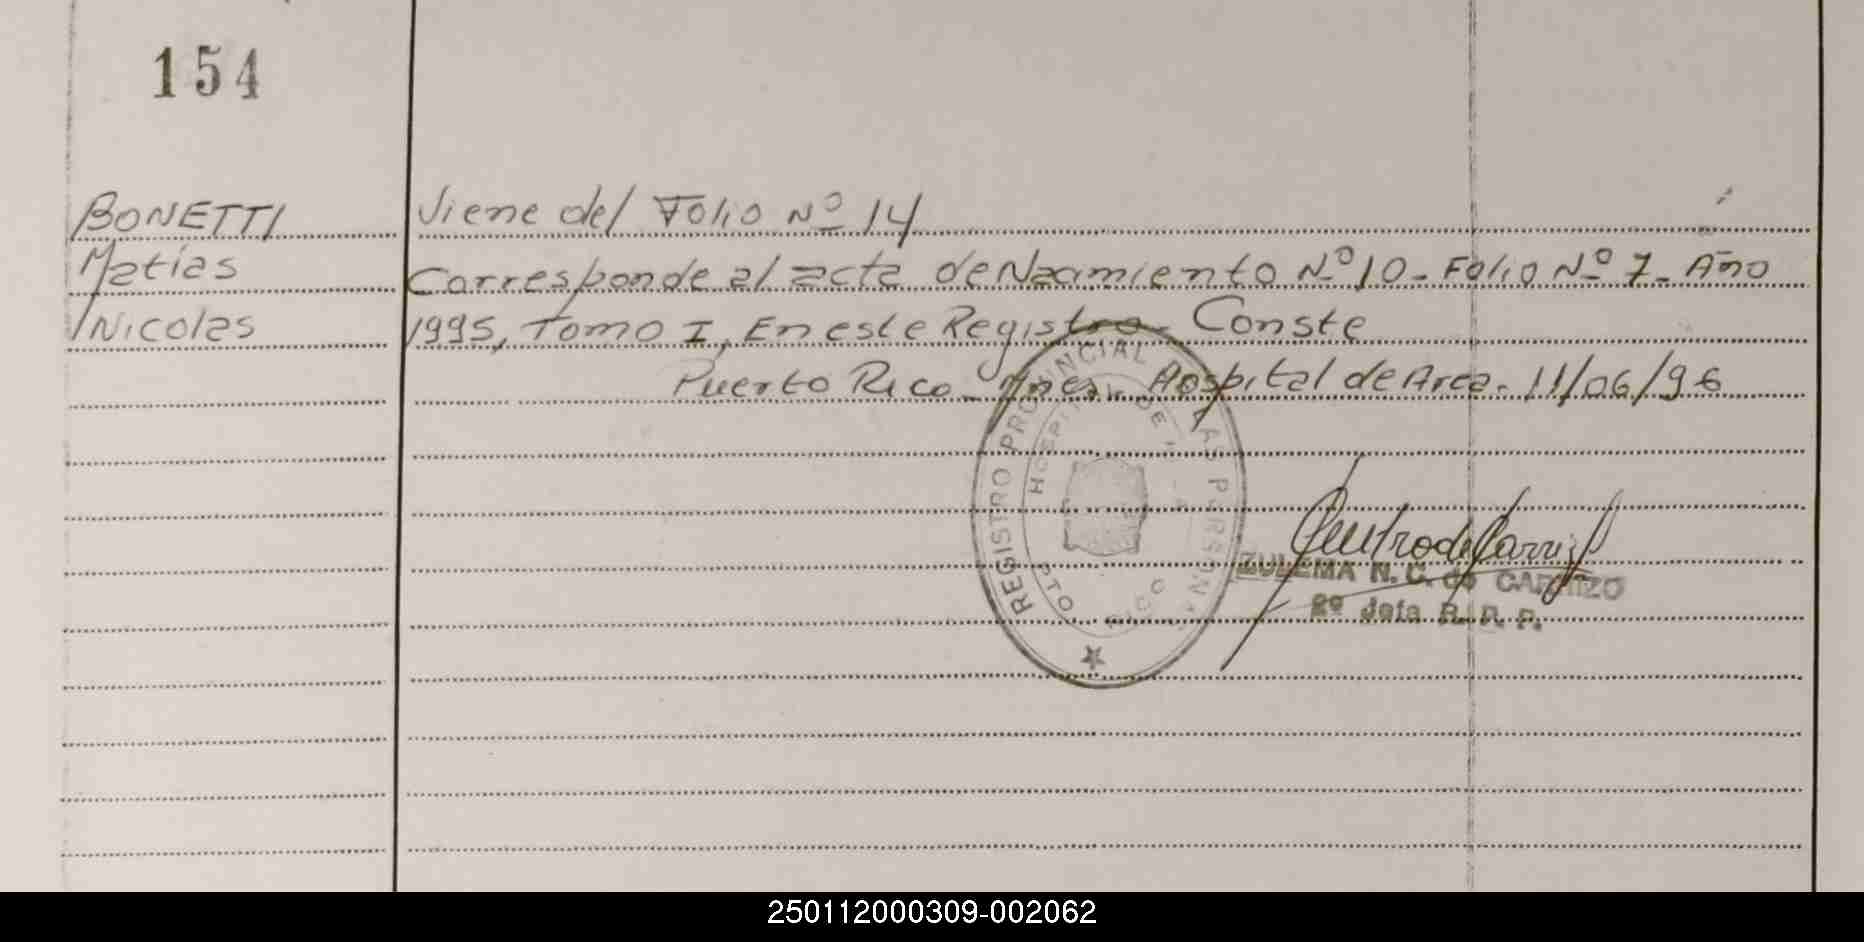 154
BONETTI Viene del Folio Nº 14
Matías Corresponde al acta de Nacimiento Nº 10 - Folio Nº 7 - Año
Nicolas 1995, Tomo I, En este Registro - Conste
Puerto Rico - Mnes. Hospital de Area. 11/06/96
REGISTRO PROVINCIAL DE LAS PERSONAS
HOSPITAL DE
PTO. RICO
ZULEMA N. C. de CARRIZO
2º Jefa R. P. P.
250112000309-002062